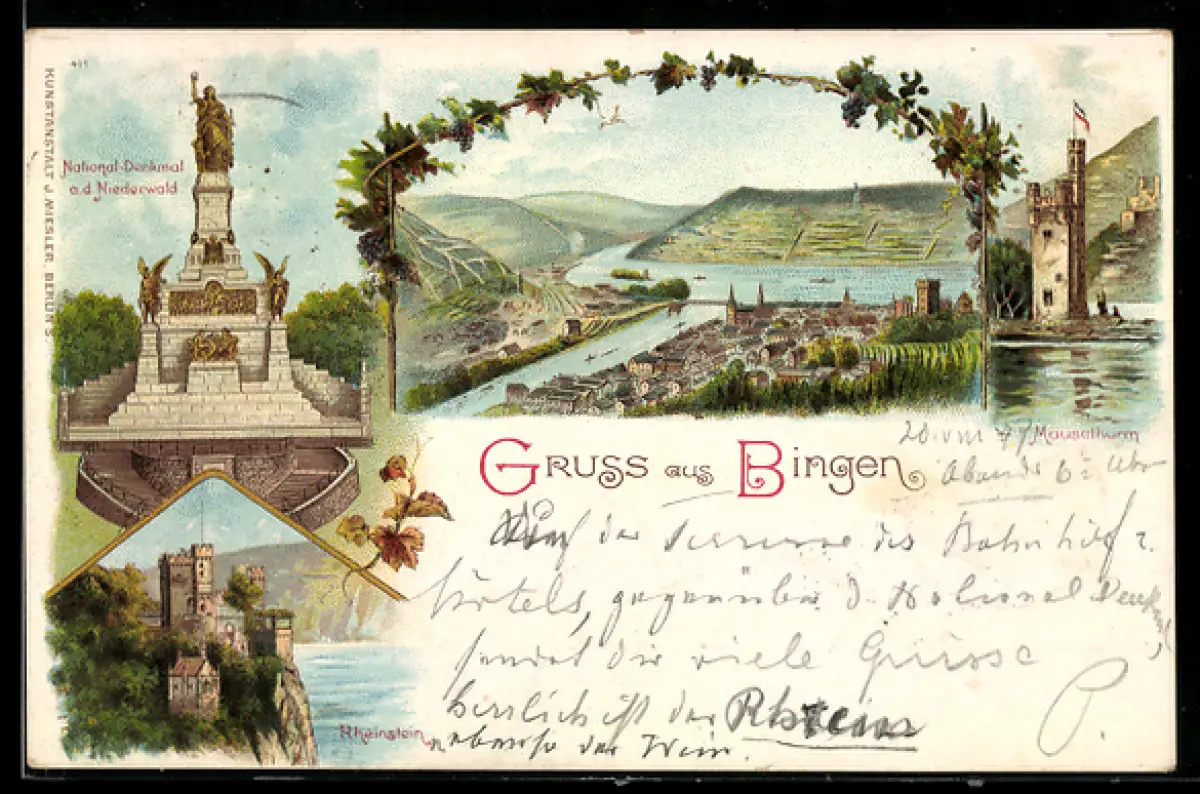 491
KUNSTANSTALT J. MIESLER, BERLIN S.
National-Denkmal
a.d. Niederwald
Mäusethurm
Gruss aus Bingen
20. VIII 97
Abends 6 Uhr
Auf der Terrasse des Bahnhof
Hotels, gegenüber d. National Denkmal,
sendet Dir viele Grüsse
P.
herrlich ist der Rhein
ebenso der Wein.
Rheinstein